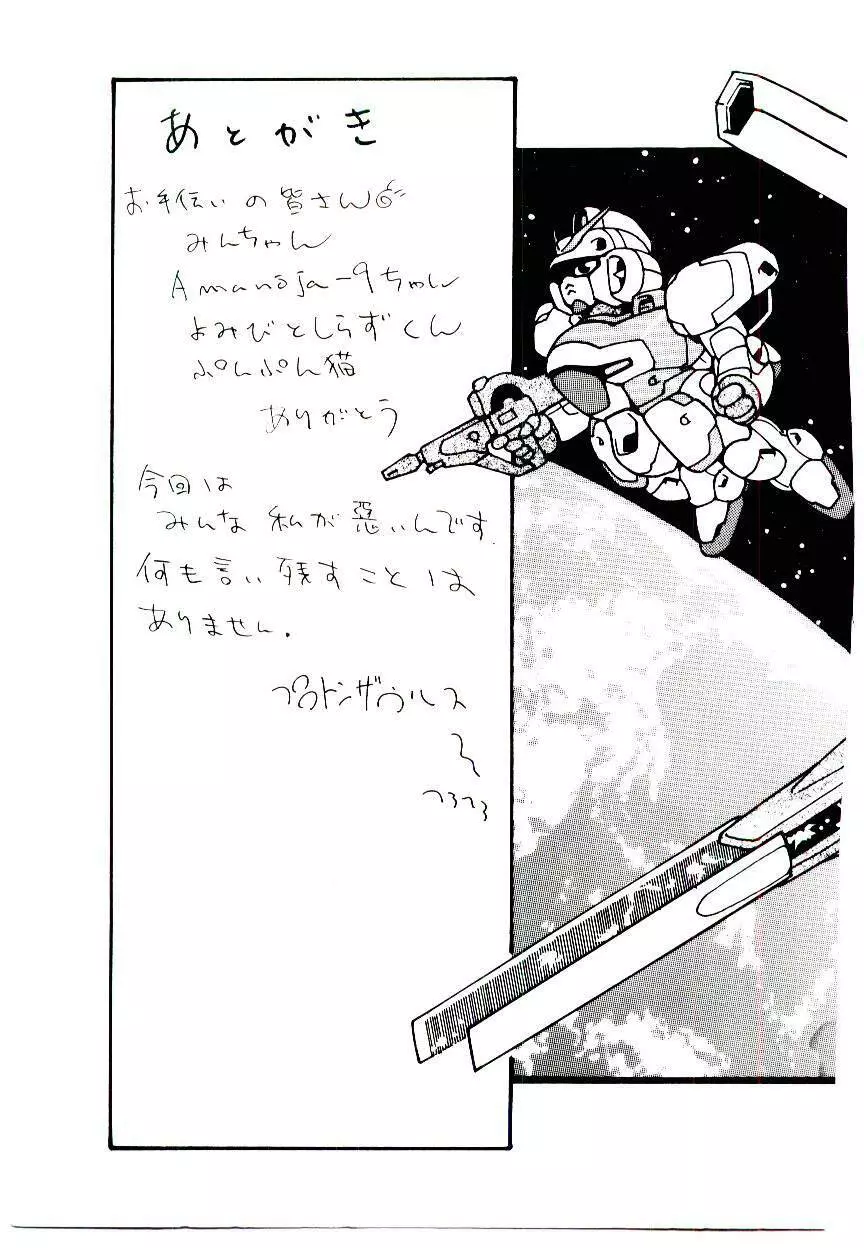 あとがき
お手伝いの皆さん
みんちゃん
Amanoja-9ちゃん
よみびとしらずくん
ぷんぷん猫
ありがとう
今回は
みんな私が悪いんです.
何も言い残すことは
ありません.
プロトンザウルス